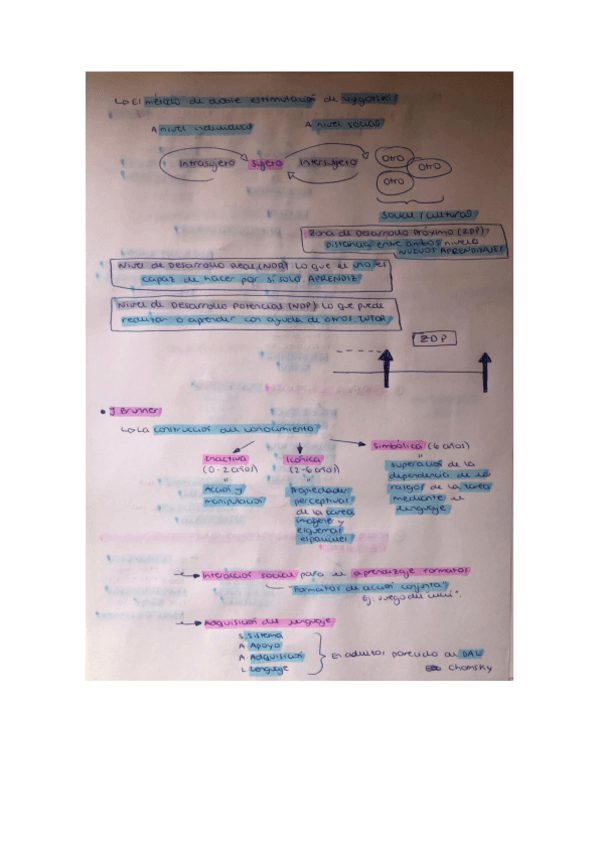 ↳ El método de doble estimulación de Vygotski
A nivel individual
A nivel social
Intrasujeto
Sujeto
Intersujeto
Otro
Otro
Otro
Social / cultural
Zona de Desarrollo Próximo (ZDP):
distancia entre ambos niveles
NUEVOS APRENDIZAJES
Nivel de Desarrollo Real (NDR): Lo que él uno es
capaz de hacer por sí solo. APRENDIZ
Nivel de Desarrollo Potencial (NDP): Lo que puede
realizar o aprender con ayuda de otros TUTOR
ZDP
• J. Brunner
↳ La construcción del conocimiento
Inactiva
(0-2 años)
Acción y
manipulación
Icónica
(2-6 años)
Propiedades
perceptivas
de la tarea
imágenes y
esquemas
espaciales
Simbólica (6 años)
superación de la
dependencia de los
rasgos de la tarea
mediante el
lenguaje
→ Interacción social para el aprendizaje formatos
"Formatos de acción conjunta"
Ej: Juego del cucú.
→ Adquisición del lenguaje
S. Sistema
A. Apoyo
A. Adquisición
L. Lenguaje
En adultos parecido al DAL
Chomsky